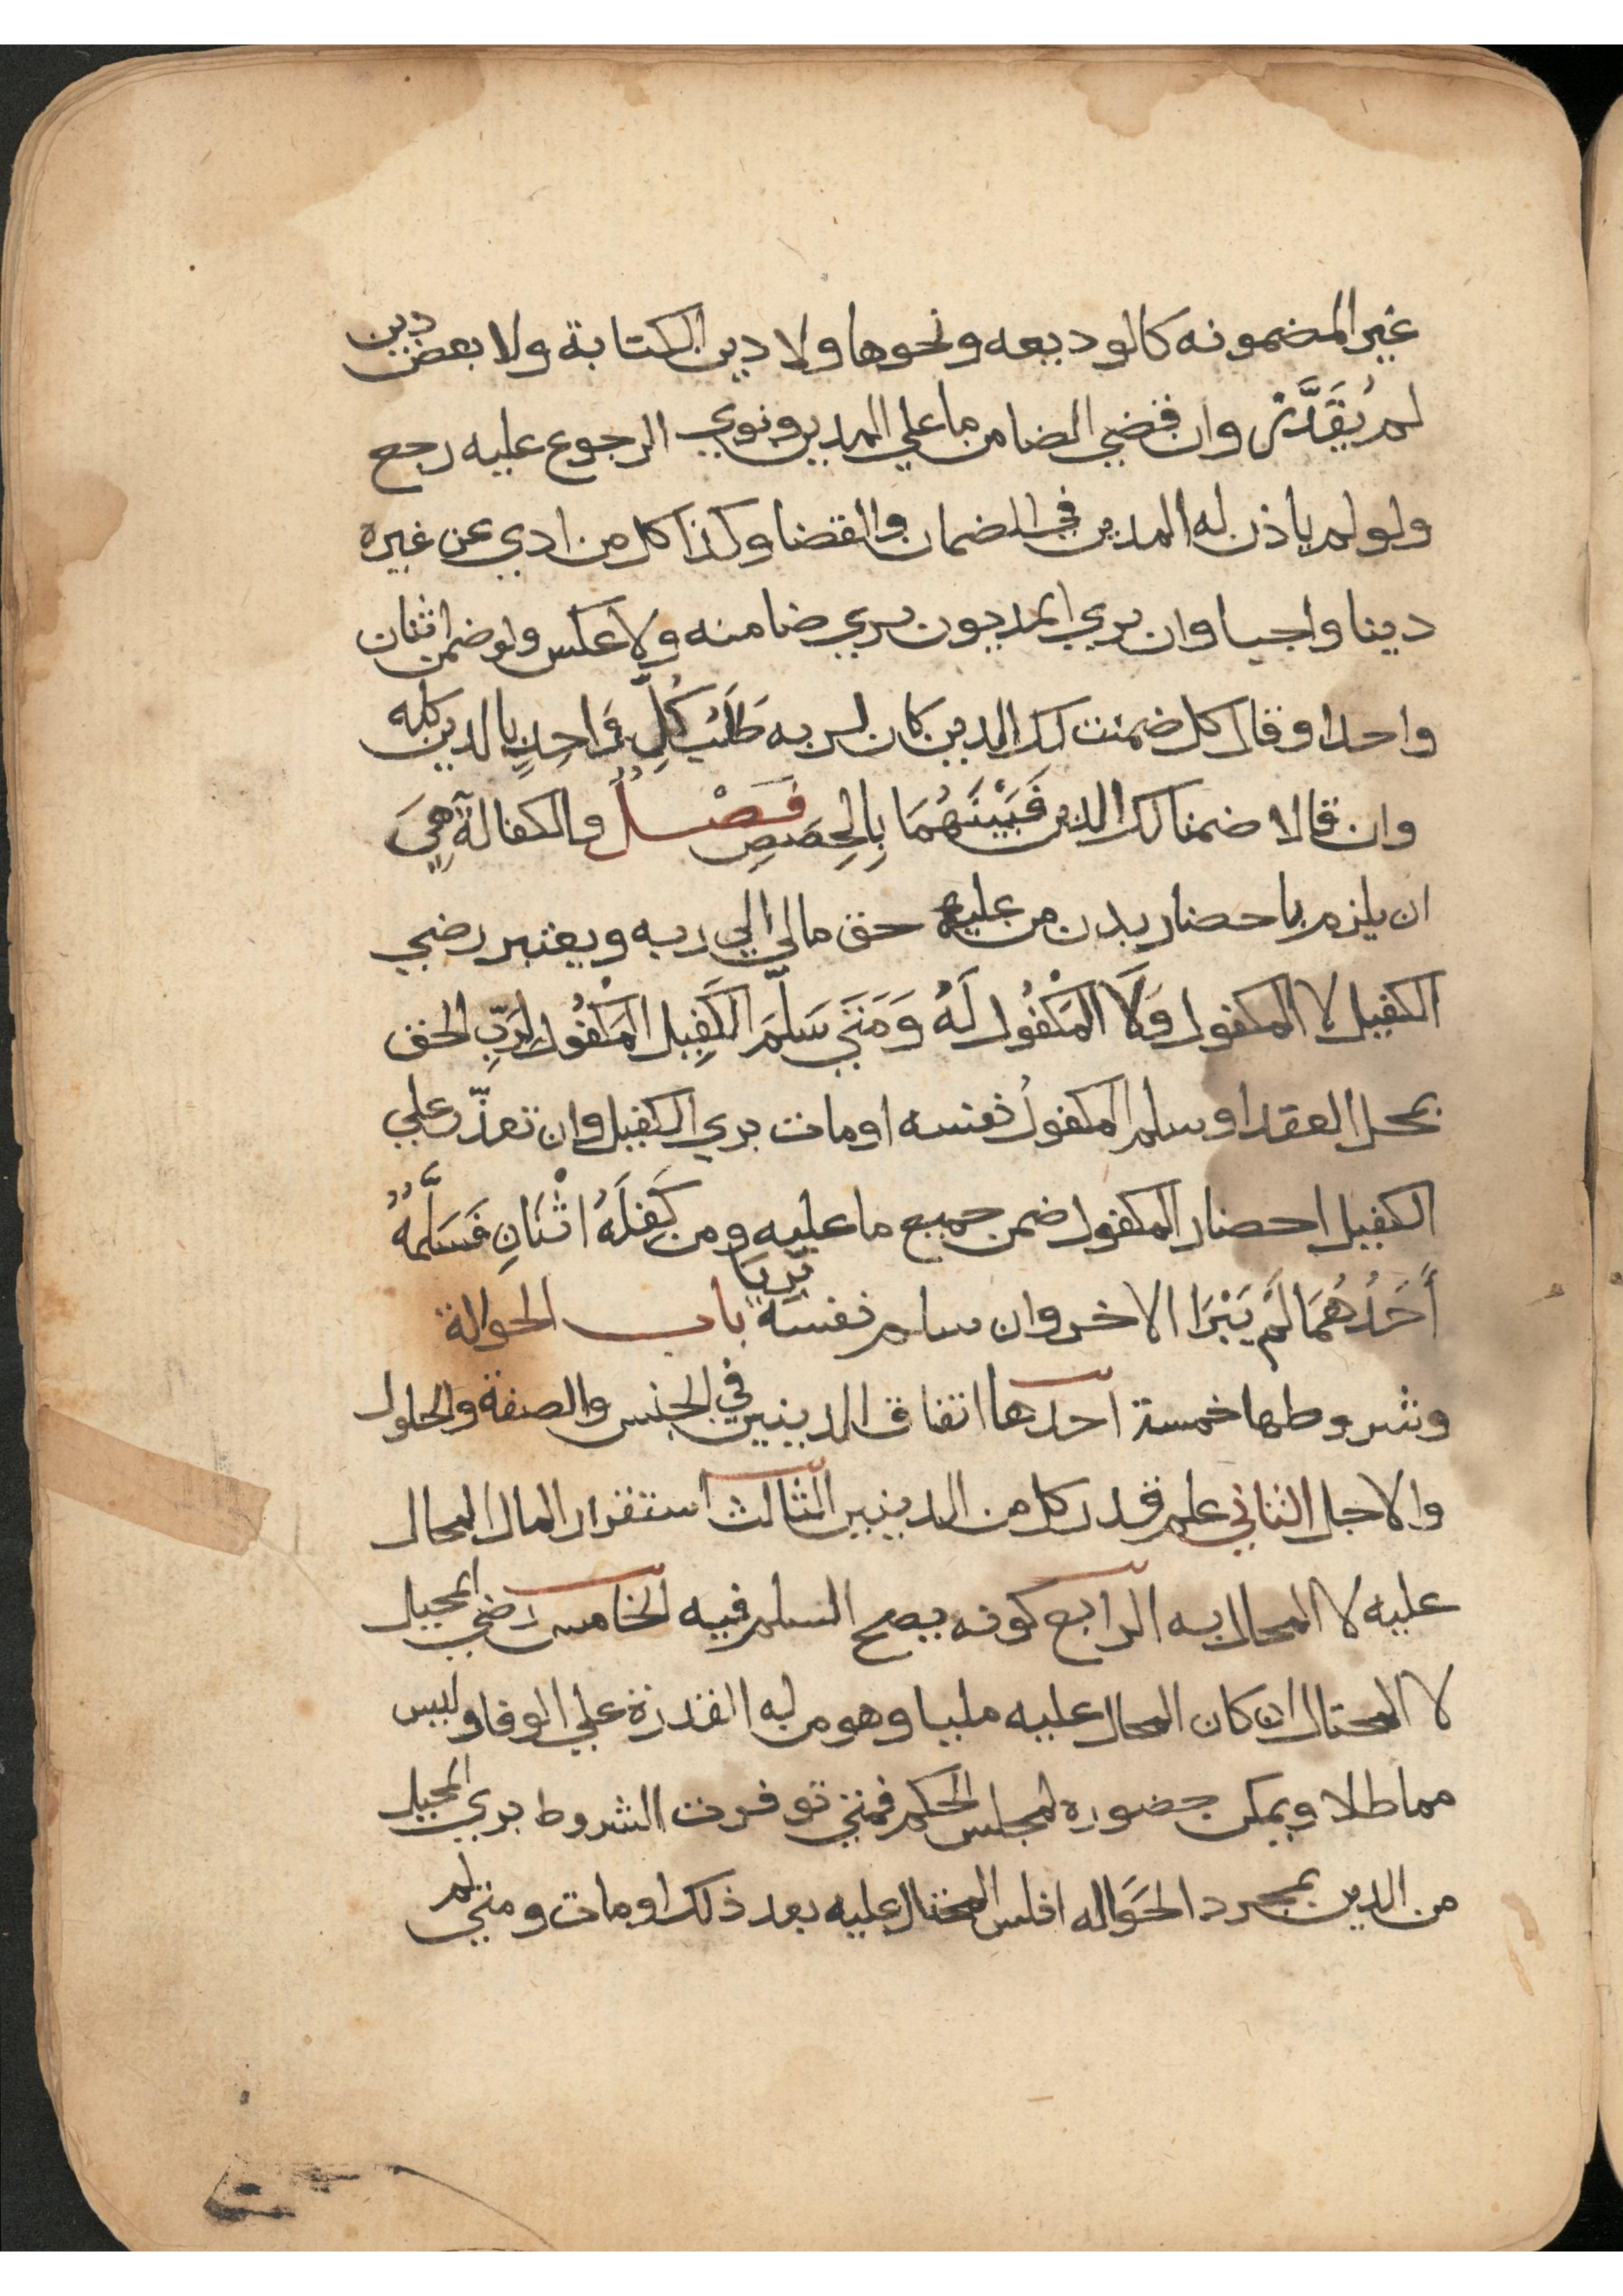 غير المضمونه كالوديعه ونحوها ولا دين الكتابة ولا بعض دين
لم يُقَدَّر وان قضي الضامن ما علي المدين ونوي الرجوع عليه رجع
ولو لم ياذن له المدين في الضمان والقضا وكذا كل من ادي عن غيره
دينا واجبا وان بري المديون بري ضامنه ولا عكس ولو ضمن اثنان
واحدا وقال كل ضمنت لك الدين كان لربه طَلَبُ كُلِّ وَاحِدٍ بالدين كله
وان قالا ضمنا لك الدين فَبَيْنَهُمَا بِالحِصَصِ فَصْلٌ والكفالة هِيَ
ان يلزم باحضار بدن من عليه حق مالي الي ربه ويعتبر رضي
الكفيل لا المكفول وَلَا المَكْفُول لَهُ وَمَتَي سَلَّمَ الكَفِيل المَكْفُول لِرَبِّ الحق
بمحل العقد او سلم المكفولُ نفسه او مات بري الكفيل وان تعذّر علي
الكفيل احضار المكفول ضمن جميع ما عليه ومن كَفَلَهُ اثْنَانِ فَسَلَّمَهُ
أَحَدُهُمَا لَمْ يَبْرَا الاخر وان سلم نفسه بَرِيَا باب الحوالة
وشروطها خمسة احدها اتفاق الدينين في الجنس والصفة والحلول
والاجل الثاني علم قدر كل من الدينين الثالث استقرار المال المحال
عليه لا المحال به الرابع كونه يصح السلم فيه الخامس رضي المحيل
لا المحتال ان كان المحال عليه مليا وهو من له القدرة علي الوفا وليس
مماطلا ويمكن حضوره لمجلس الحكم فمتي توفرت الشروط بري المحيل
من الدين بمجرد الحَوَاله افلس المحتال عليه بعد ذلك او مات ومتي لم